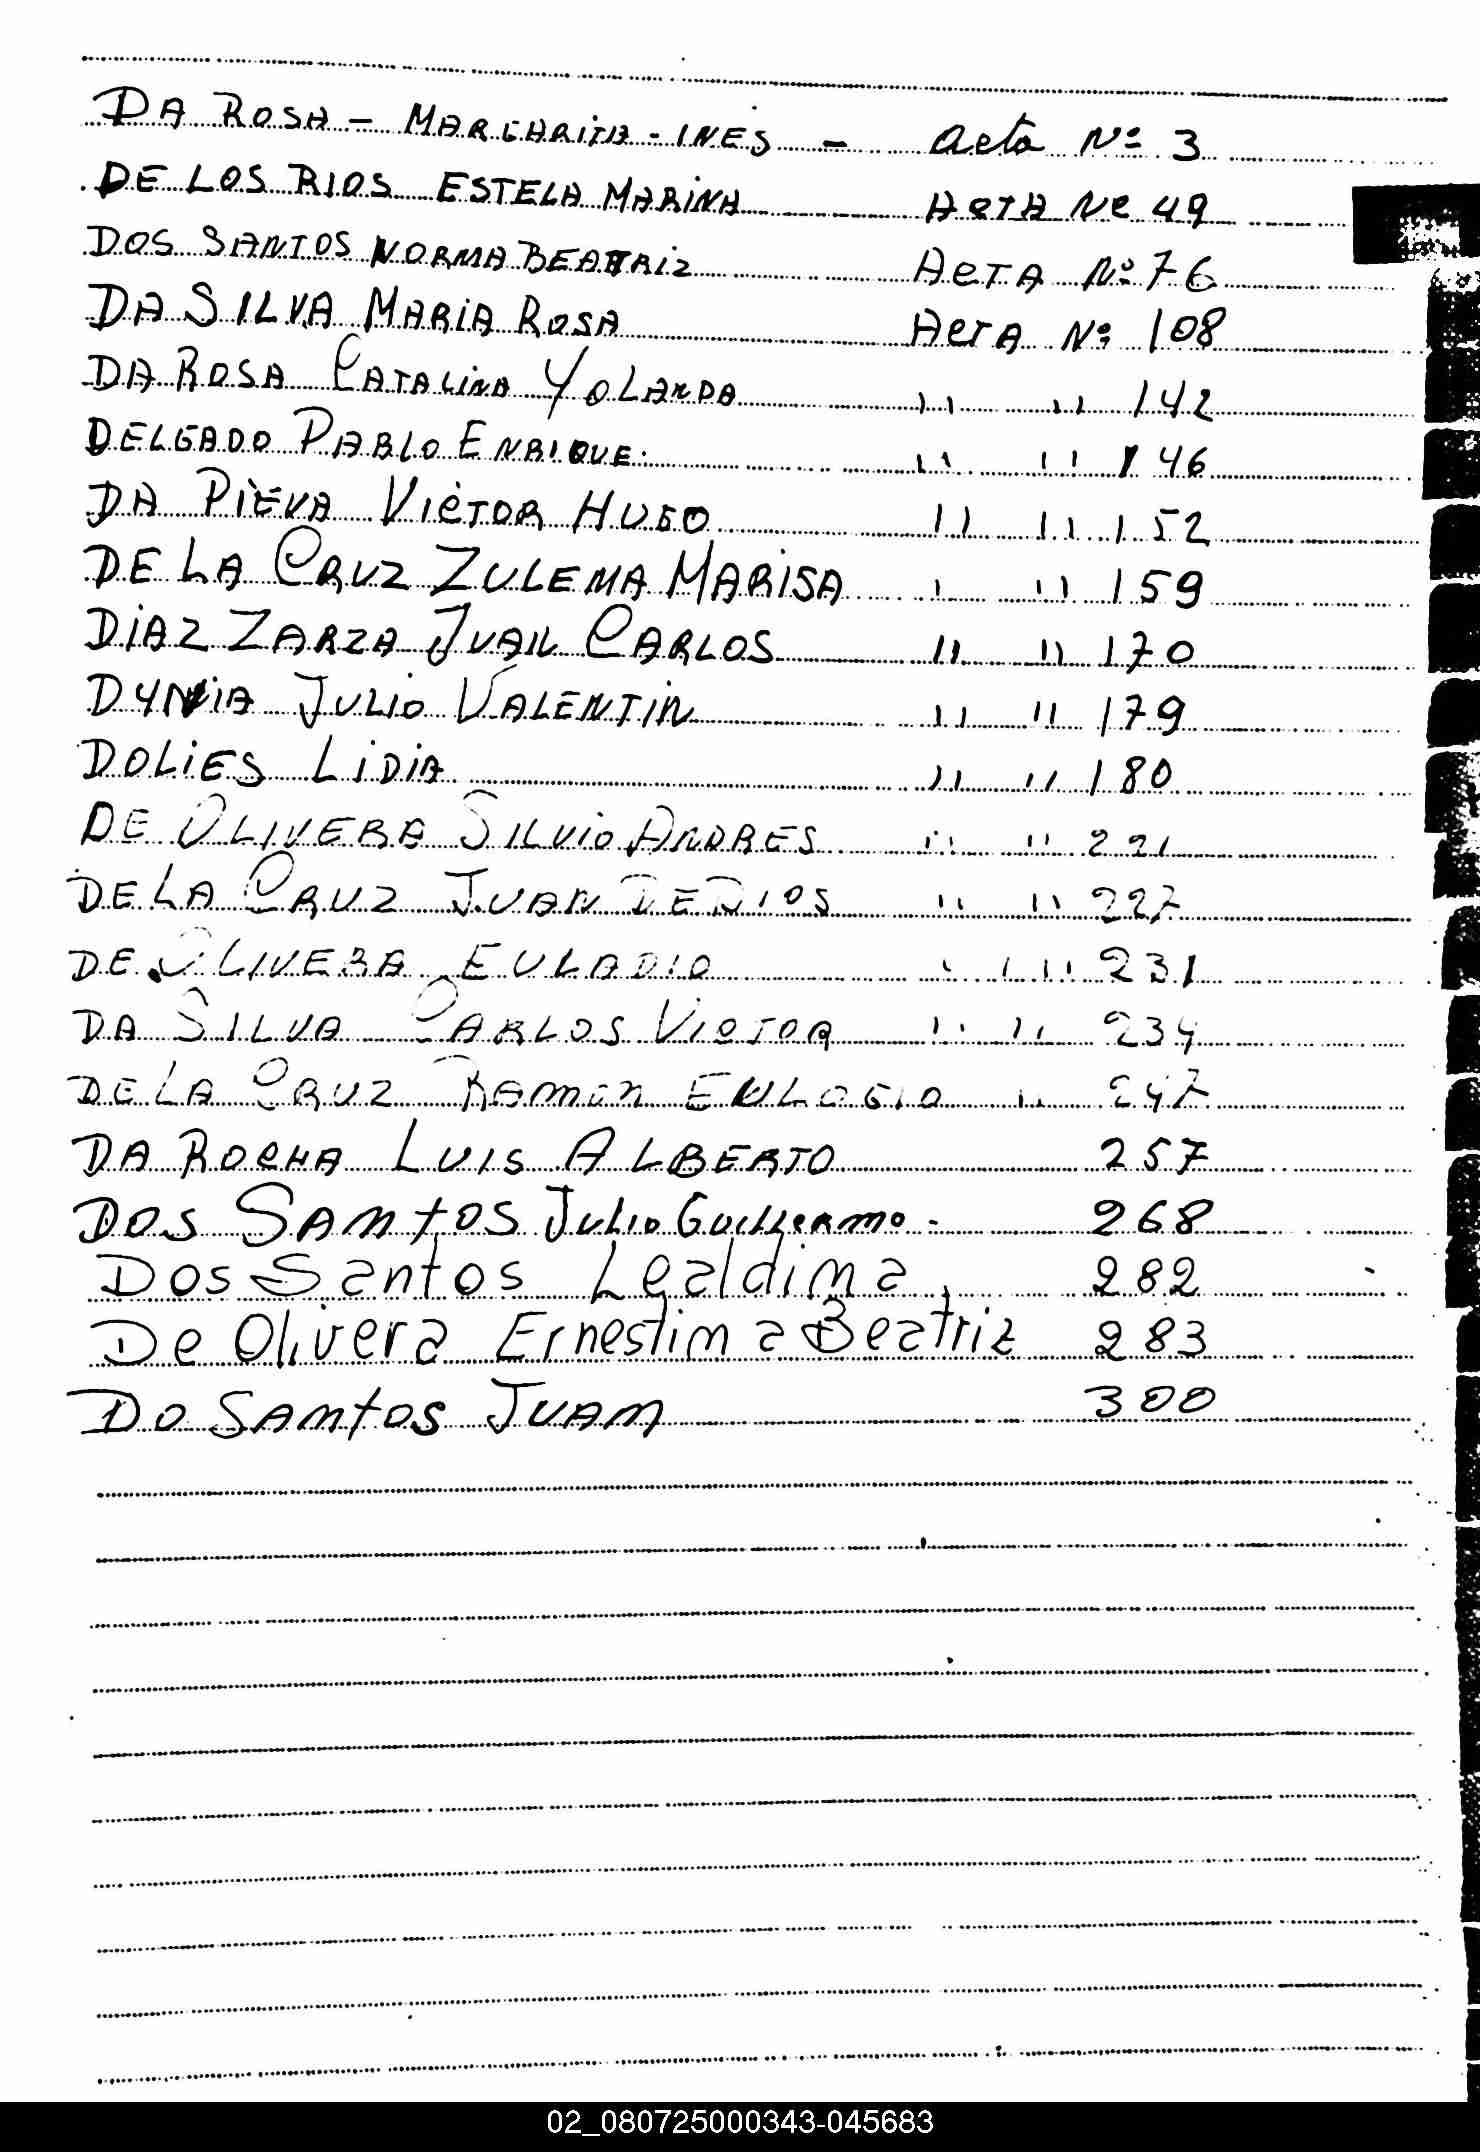 DA ROSA - MARGARITA - INES - Acta Nº 3
DE LOS RIOS ESTELA MARINA ACTA Nº 49
DOS SANTOS NORMA BEATRIZ ACTA Nº 76
DA SILVA MARIA ROSA ACTA Nº 108
DA ROSA CATALINA YOLANDA " " 142
DELGADO PABLO ENRIQUE. " " 146
DA PIEVA VICTOR HUGO " " 152
DE LA CRUZ ZULEMA MARISA " " 159
DIAZ ZARZA JUAN CARLOS " " 170
DYNIA JULIO VALENTIN " " 179
DOLIES LIDIA " " 180
DE OLIVERA SILVIO ANDRES " " 221
DE LA CRUZ JUAN DE DIOS " " 227
DE OLIVERA EULADIO " " 231
DA SILVA CARLOS VICTOR " " 234
DE LA CRUZ RAMON EULOGIO " 247
DA ROCHA LUIS ALBERTO 257
DOS SANTOS JULIO GUILLERMO - 268
Dos Santos Lealdina 282
De Olivera Ernestina Beatriz 283
DO SANTOS JUAN 300
02_080725000343-045683